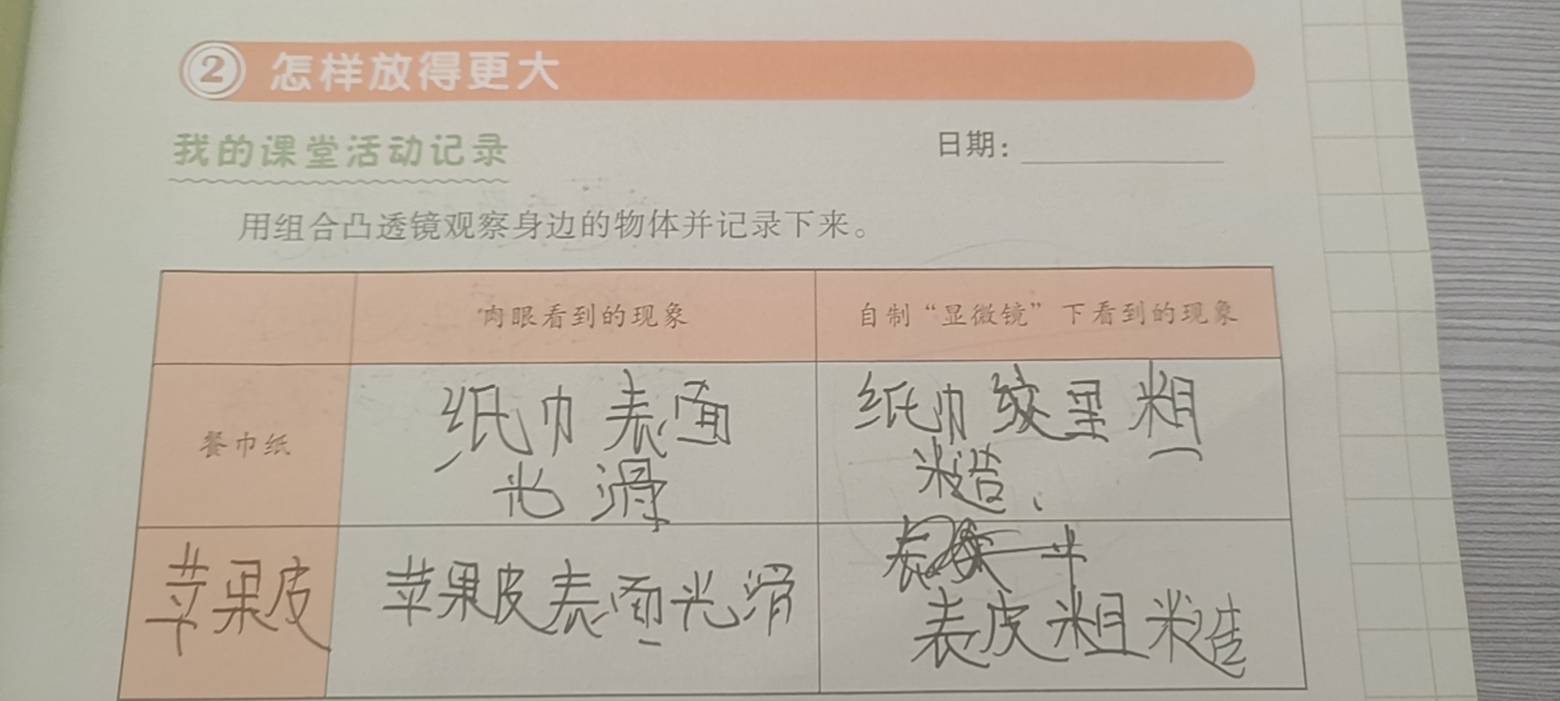 2 怎样放得更大
我的课堂活动记录
日期：
用组合凸透镜观察身边的物体并记录下来。
肉眼看到的现象
自制“显微镜”下看到的现象
餐巾纸
纸巾表面
光滑
纸巾纹里粗
糙.
苹果皮
苹果皮表面光滑
表皮粗糙